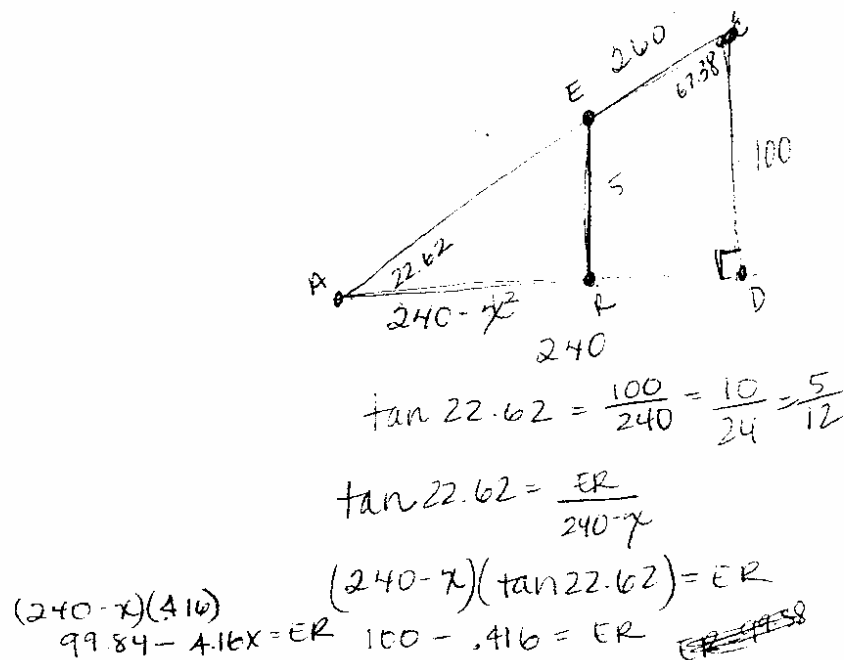 260
E
67.38
5
100
A
22.62
240 - x²
R
D
240
tan 22.62 = 100/240 = 10/24 = 5/12
tan 22.62 = ER/240-x
(240-x)(tan 22.62) = ER
(240-x)(.416)
99.84 - 4.16x = ER
100 - .416 = ER